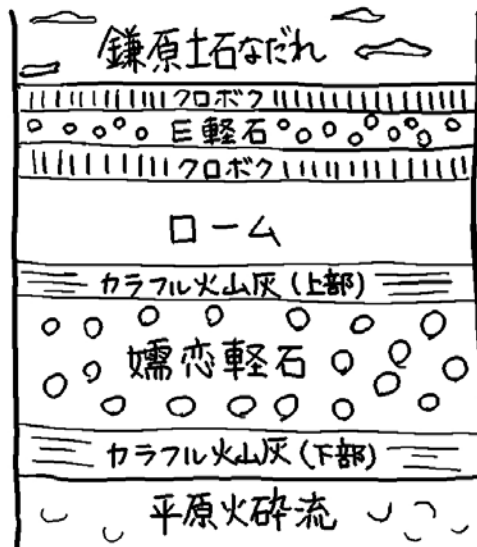 鎌原土石なだれ
クロボク
E軽石
クロボク
ローム
カラフル火山灰(上部)
嬬恋軽石
カラフル火山灰(下部)
平原火砕流